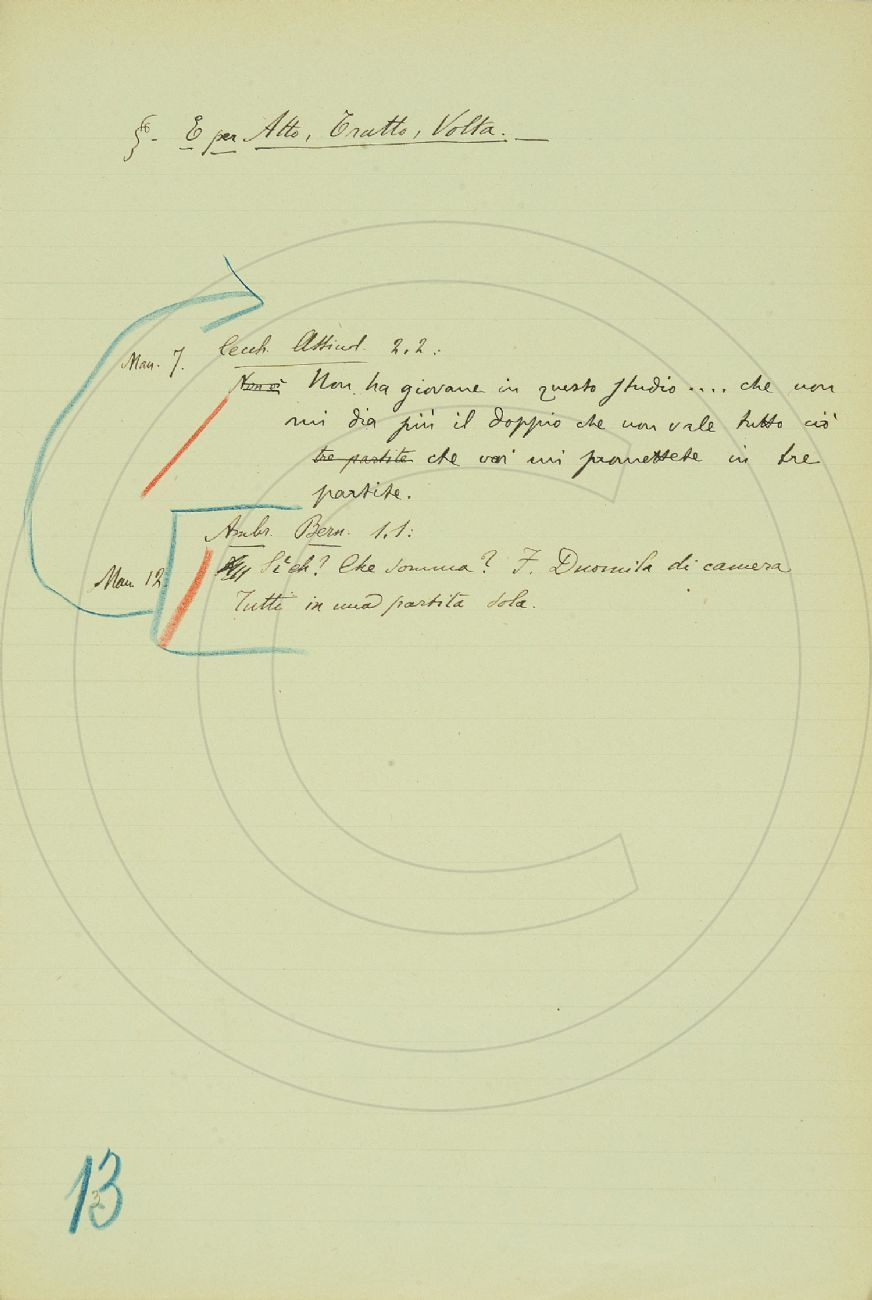 §. E per Atto, Tratto, Volta. —
Man. 7. Cecch. Assiuol. 2.2:
Non vi Non ha giovane in questo studio .... che non
mi dia più il doppio che non vale tutto ciò
tre partite che voi mi promettete in tre
partite.
Ambr. Bern. 1.1:
Man 12. Sì eh? Che somma? F. Duomila di camera
Tutti in una partita sola.
13